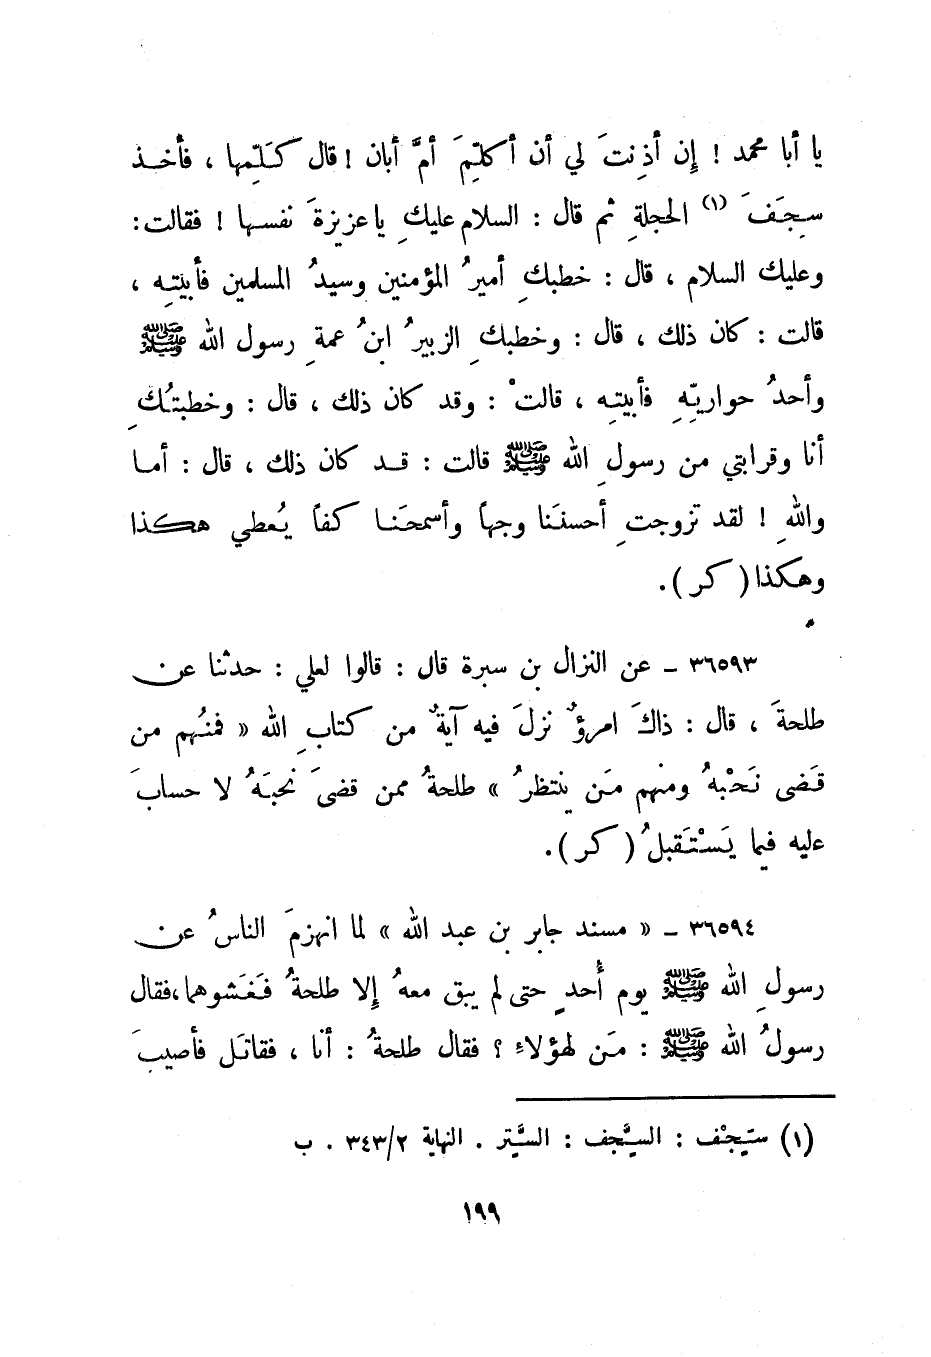 يا أبا محمد ! إن أذِنتَ لي أن أكلِّمَ أمَّ أبان ! قال كَلِّمها ، فأخذ
سِجَفَ (١) الحجلةِ ثم قال : السلام عليكِ يا عزيزةَ نفسها ! فقالت :
وعليك السلام ، قال : خطبكِ أميرُ المؤمنين وسيدُ المسلمين فأبيتِه ،
قالت : كان ذلك ، قال : وخطبكِ الزبيرُ ابنُ عمةِ رسول الله ﷺ
وأحدُ حواريّهِ فأبيتِه ، قالتْ : وقد كان ذلك ، قال : وخطبتُكِ
أنا وقرابتي من رسولِ الله ﷺ قالت : قد كان ذلك ، قال : أما
واللهِ ! لقد تزوجتِ أحسنَنا وجهاً وأسمحَنا كفاً يُعطي هكذا
وهكذا ( كر ) .
٣٦٥٩٣ ـ عن النزال بن سبرة قال : قالوا لعلي : حدثنا عن
طلحةَ ، قال : ذاكَ امرؤٌ نزلَ فيه آيةٌ من كتابِ الله « فمنُهم من
قَضى نَحْبهُ ومنهم مَن ينتظرُ » طلحةُ ممن قضىَ نحبَهُ لا حسابَ
عليه فيما يَسْتَقبلُ ( كر ) .
٣٦٥٩٤ ـ « مسند جابر بن عبد الله » لما انهزمَ الناسُ عن
رسولِ الله ﷺ يوم أُحدٍ حتى لم يبق معهُ إلا طلحةُ فَغَشوهما ، فقال
رسولُ الله ﷺ : مَن لهؤلاءِ ؟ فقال طلحةُ : أنا ، فقاتَل فأصيبَ
(١) سِجْف : السِّجف : السِّتر . النهاية ٣٤٣/٢ . ب
١٩٩